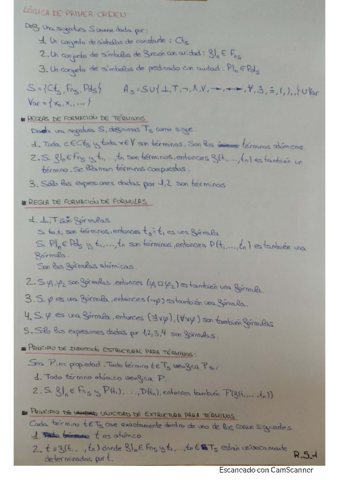 LÓGICA DE PRIMER ORDEN
Def: Una signatura S viene dada por:
1. Un conjunto de símbolos de constante: Ct_S
2. Un conjunto de símbolos de función con aridad: f|_n ∈ Fn_S
3. Un conjunto de símbolos de predicado con aridad: P|_n ∈ Pd_S
S = {Ct_S, Fn_S, Pd_S} A_S = S ∪ {⊥, T, ¬, ∧, ∨, →, ↔, ∀, ∃, =, (, ), ,} ∪ Var
Var = {x_0, x_1, ...}
■ REGLAS DE FORMACIÓN DE TÉRMINOS
Dada una signatura S, definimos T_S como sigue:
1. Toda c ∈ Ct_S y toda v ∈ V son términos. Son los términos atómicos.
2. Si f|_n ∈ Fn_S y t_1, ..., t_n son términos, entonces f(t_1, ..., t_n) es también un
término. Se llaman términos compuestos.
3. Sólo las expresiones dadas por 1, 2 son términos
■ REGLA DE FORMACIÓN DE FÓRMULAS
1. ⊥, T son fórmulas
Si t_0, t_1 son términos, entonces t_0 = t_1 es una fórmula.
Si P|_n ∈ Pd_S y t_1, ..., t_n son términos, entonces P(t_1, ..., t_n) es también una
fórmula.
Son las fórmulas atómicas
2. Si φ_1, φ_2 son fórmulas, entonces (φ_1 □ φ_2) es también una fórmula.
3. Si φ es una fórmula, entonces (¬φ) es también una fórmula.
4. Si φ es una fórmula, entonces (∃xφ), (∀xφ) son también fórmulas
5. Sólo las expresiones dadas por 1, 2, 3, 4 son fórmulas
■ PRINCIPIO DE INDUCCIÓN ESTRUCTURAL PARA TÉRMINOS
Sea P una propiedad. Todo término t ∈ T_S verifica P si:
1. Todo término atómico verifica P.
2. Si f|_n ∈ Fn_S y P(t_1), ..., P(t_n), entonces también P(f(t_1, ..., t_n))
■ PRINCIPIO DE UNICIDAD DE ESTRUCTURA PARA TÉRMINOS
Cada término t ∈ T_S cae exactamente dentro de uno de los casos siguientes
1. t es atómico
2. t = f(t_1, ..., t_n) donde f|_n ∈ Fn_S y t_1, ..., t_n ∈ T_S están unívocamente
determinados por t.
R.S.1
Escaneado con CamScanner